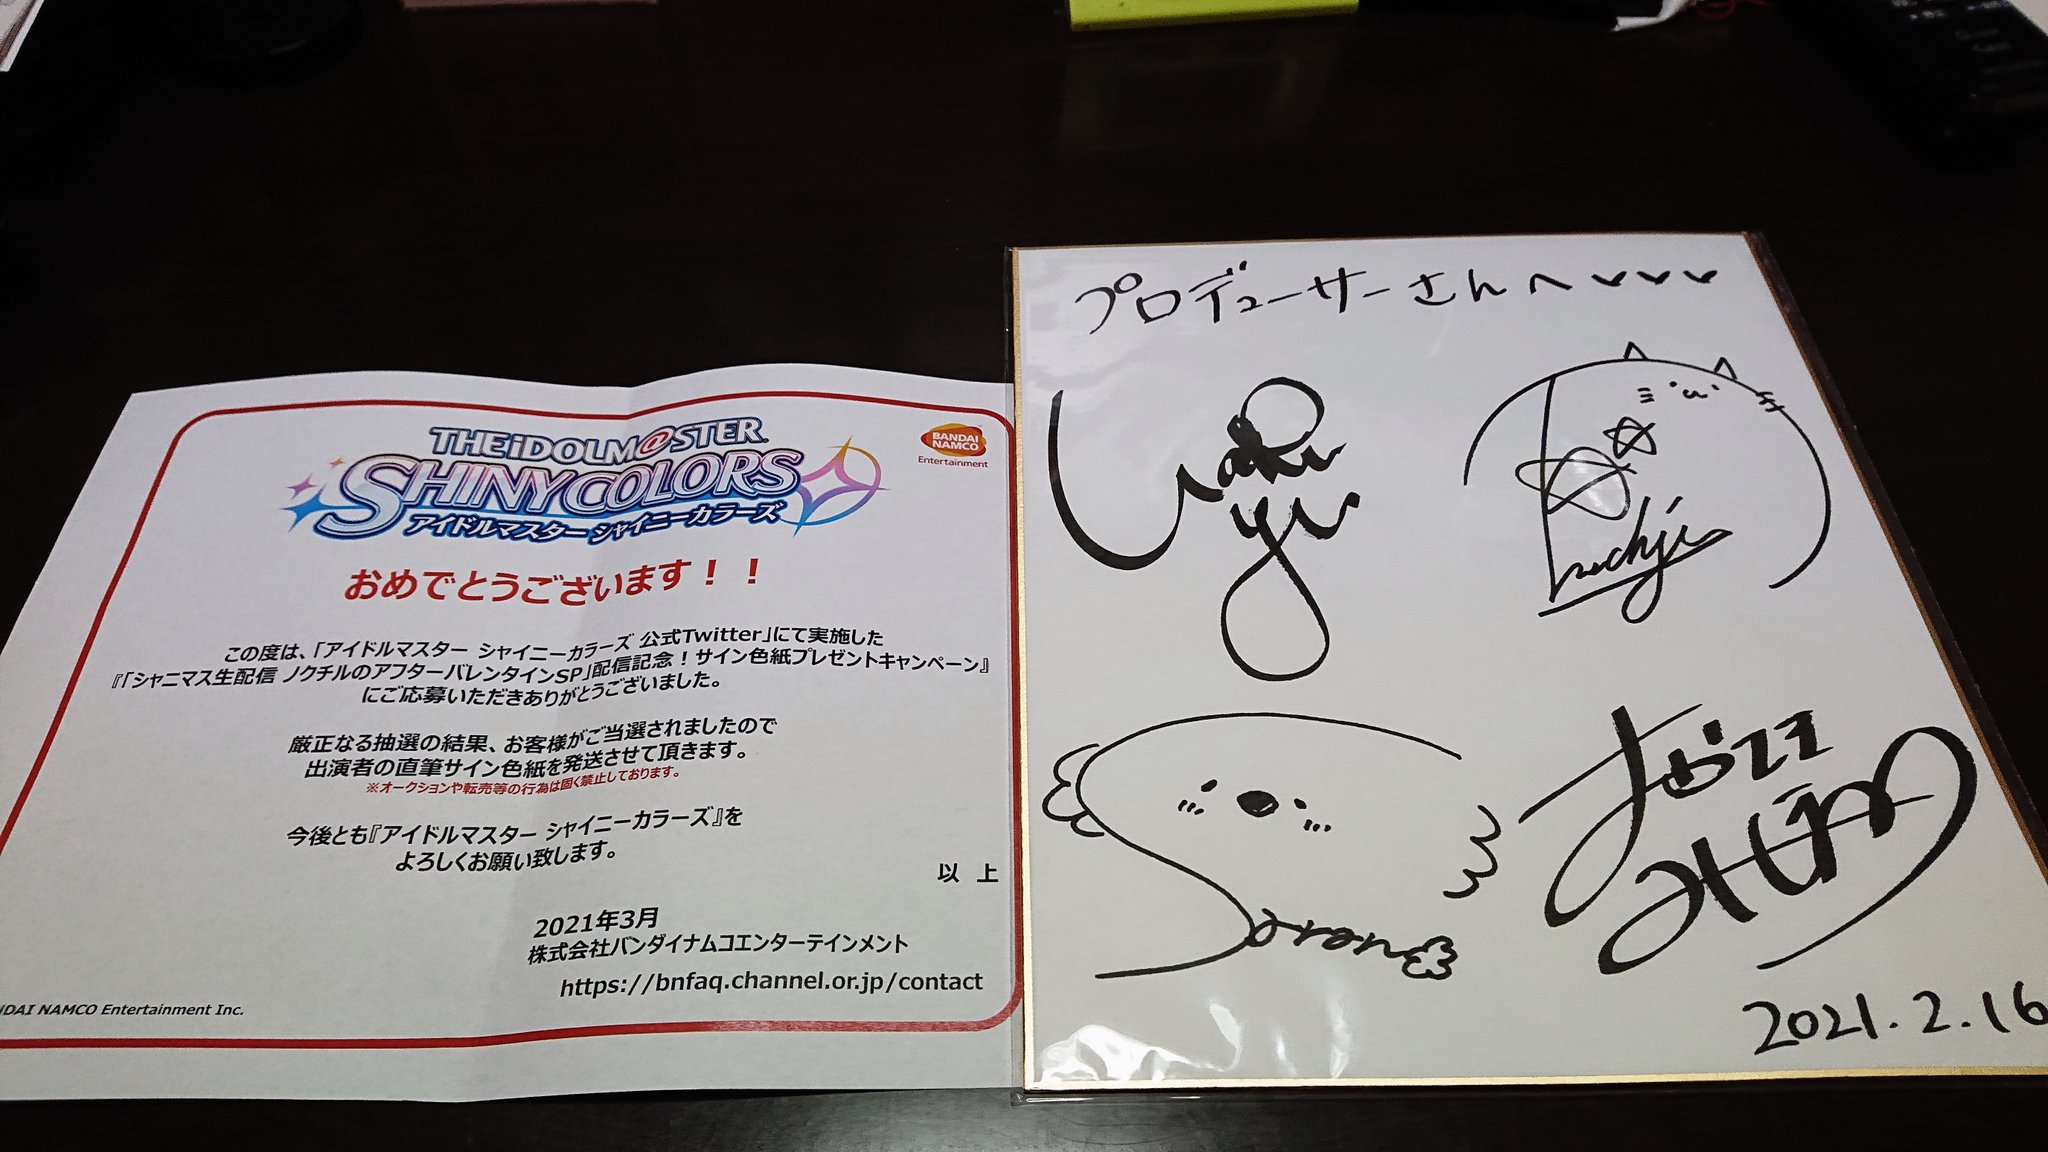 THE iDOLM@STER
SHINY COLORS
アイドルマスター シャイニーカラーズ
BANDAI
NAMCO
Entertainment
おめでとうございます！！
この度は、「アイドルマスター シャイニーカラーズ 公式Twitter」にて実施した
『「シャニマス生配信 ノクチルのアフターバレンタインSP」配信記念！サイン色紙プレゼントキャンペーン』
にご応募いただきありがとうございました。
厳正なる抽選の結果、お客様がご当選されましたので
出演者の直筆サイン色紙を発送させて頂きます。
※オークションや転売等の行為は固く禁止しております。
今後とも『アイドルマスター シャイニーカラーズ』を
よろしくお願い致します。
以 上
2021年3月
株式会社バンダイナムコエンターテインメント
https://bnfaq.channel.or.jp/contact
NDAI NAMCO Entertainment Inc.
プロデューサーさんへ
2021.2.16